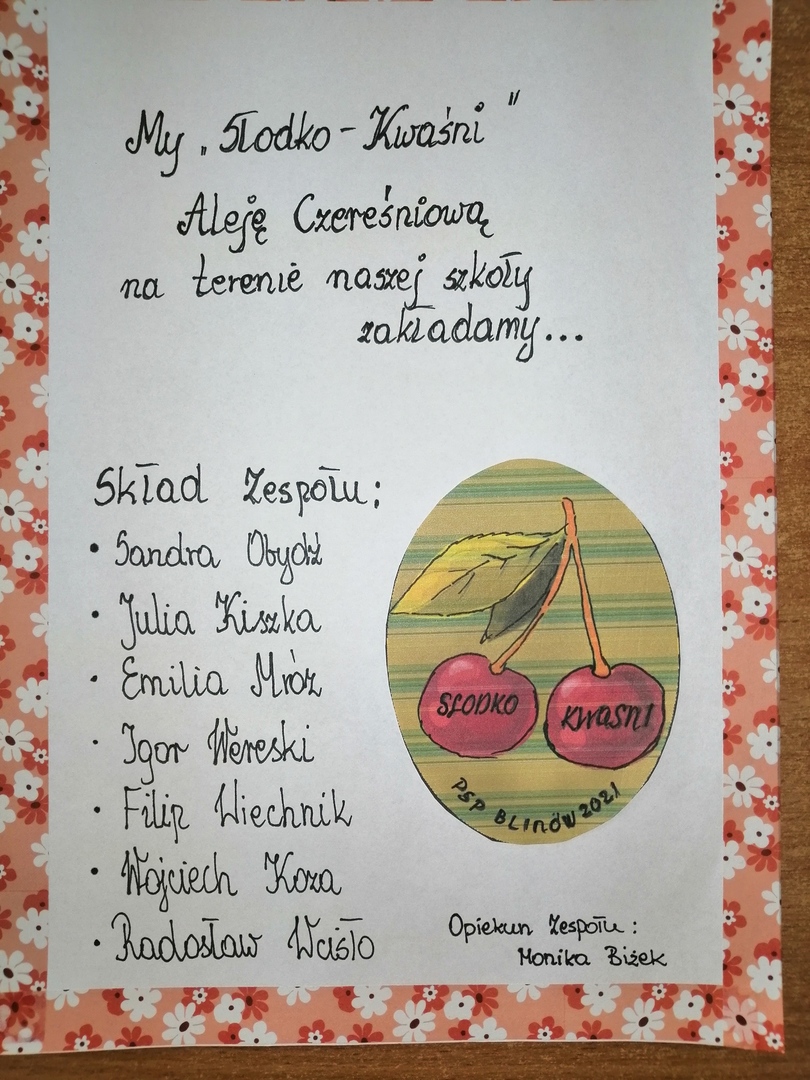 My „Słodko-Kwaśni"
Aleję Czereśniową
na terenie naszej szkoły
zakładamy...
Skład Zespołu:
• Sandra Obydź
• Julia Kiszka
• Emilia Mróz
• Igor Wereski
• Filip Wiechnik
• Wojciech Koza
• Radosław Wcisło
SŁODKO
KWAŚNI
PSP BLINÓW 2021
Opiekun Zespołu:
Monika Biżek